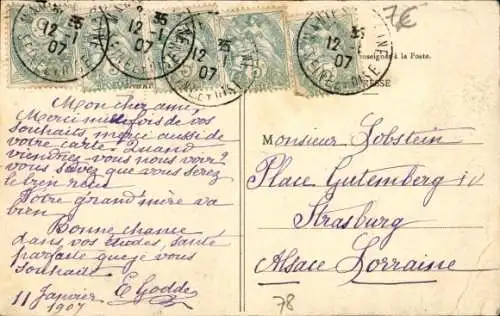 35
12 -1
07
35
12 -1
07
35
12 -1
07
35
12 -1
07
SEINE-ET-OISE
7€
à la Poste.
ADRESSE
Mon cher ami,
Merci mille fois de vos
souhaits, merci aussi de
votre carte. Quand
viendrez-vous nous voir?
vous savez que vous serez
le bien reçu
Votre grand'mère va
bien
Bonne chance
dans vos études, santé
parfaite que je vous
souhaite
E Godde
11 Janvier
1907
Monsieur Lobstein
Place Gutemberg 10
Strasburg
Alsace Lorraine
78